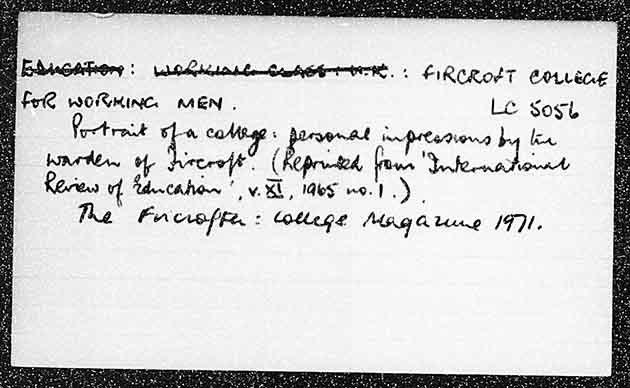 EDUCATION: WORKING CLASS: U.K.: FIRCROFT COLLEGE
FOR WORKING MEN. LC 5056
Portrait of a college: personal impressions by the
warden of Fircroft. (Reprinted from 'International
Review of Education', v. XI, 1965 no. 1.)
The Fircrofter: College Magazine 1971.